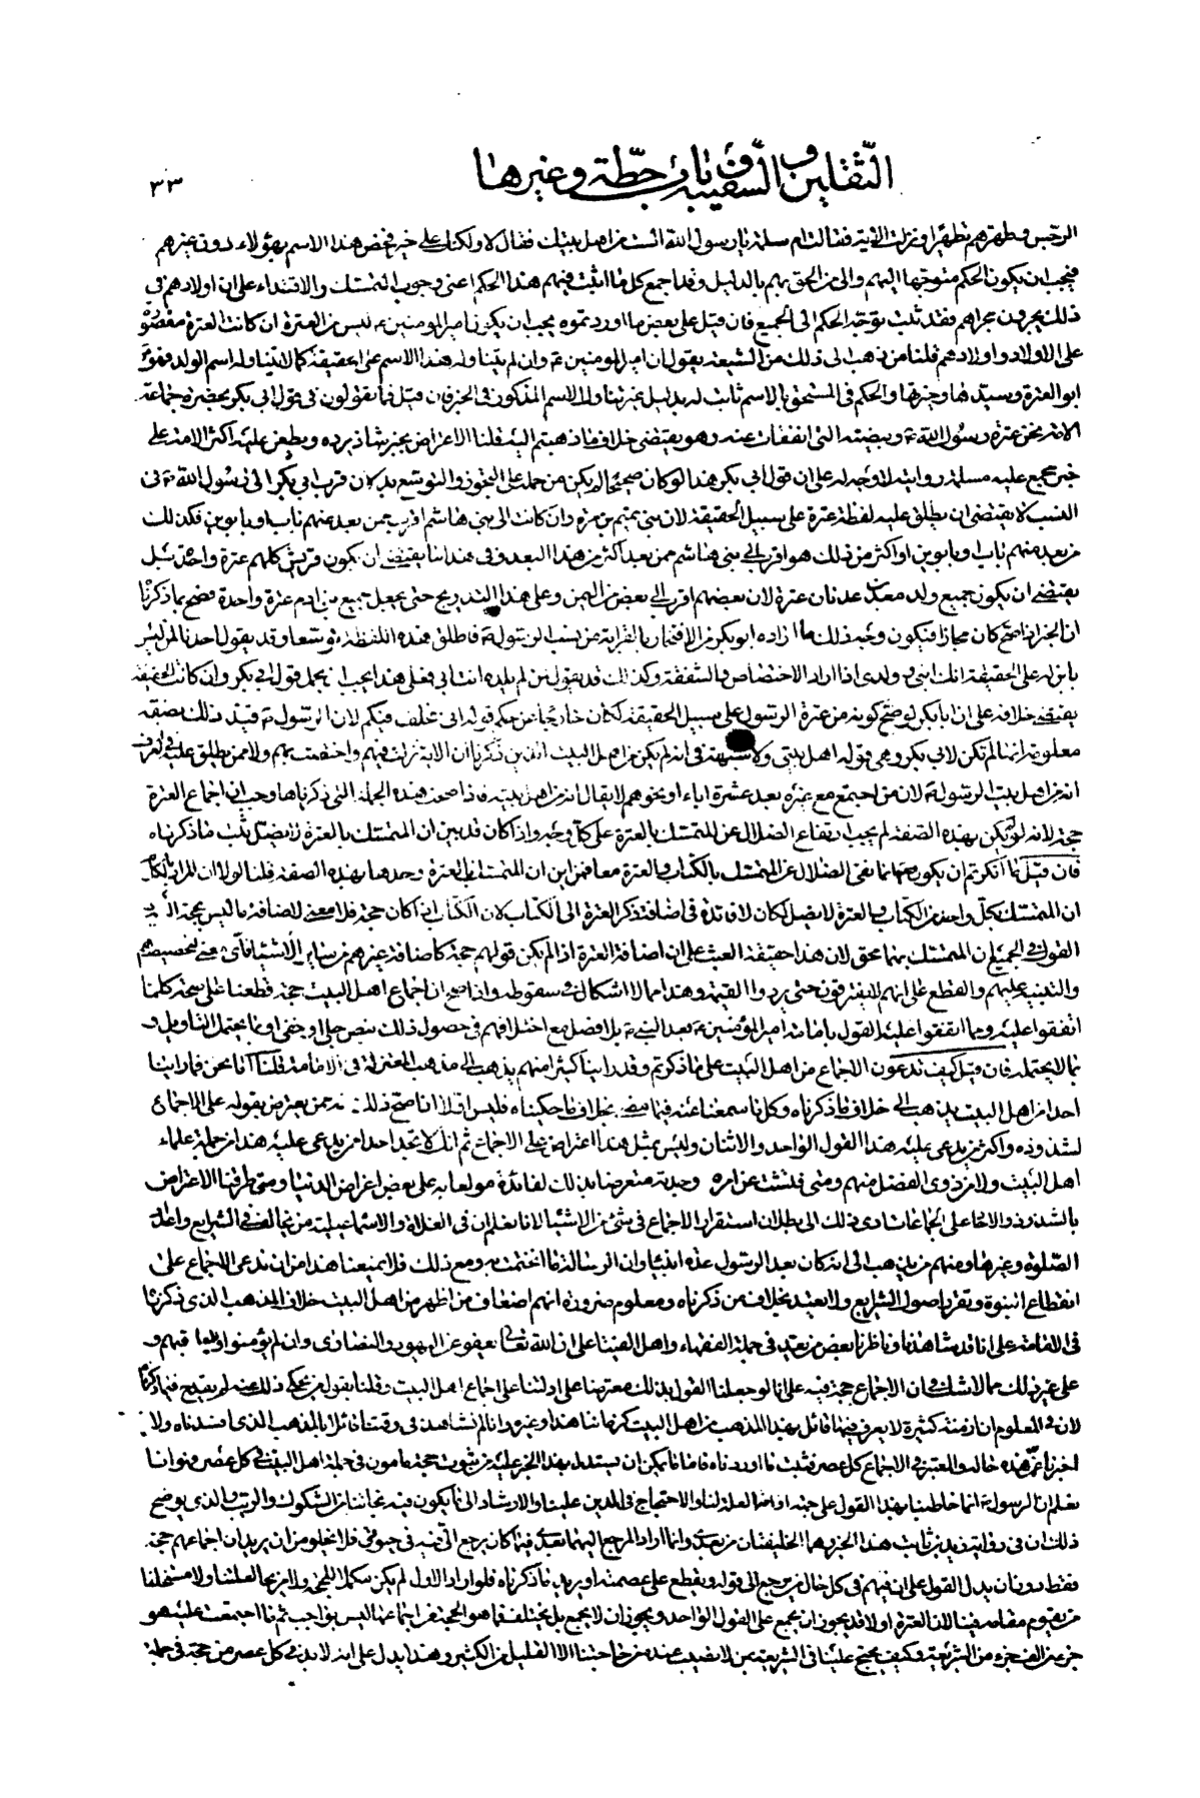 الثقلين و السفينة و باب حطّة و غيرها
٣٣
الرجس وطهرهم تطهيرا ونزلت الآية فقالت ام سلمة يا رسول الله الست من اهل بيتك فقال لا ولكنك على خير فخص هذا الاسم بهؤلاء دون غيرهم
فيجب ان يكون الحكم متوجها اليهم والى من الحق بهم بالدليل وقد اجمع كل من اثبت فيهم هذا الحكم اعنى وجوب التمسك والاقتداء على ان اولادهم فى
ذلك يجرون مجراهم فقد ثبت توجه الحكم الى الجميع فان قيل على بعض ما اوردتموه يجب ان يكون امير المؤمنين ع ليس من العترة ان كانت العترة مقصورة
على الاولاد واولادهم قلنا من ذهب الى ذلك من الشيعة يقول ان امير المؤمنين ع وان لم يتناوله هذا الاسم على الحقيقة كما لا يتناوله اسم الولد فهو
ابو العترة وسيدها وخيرها والحكم فى المستحق بالاسم ثابت له بدليل غير تناول الاسم المذكور فى الخبر فان قيل فما تقولون فى قول ابى بكر بحضرة جماعة
الامة نحن عترة رسول الله ص وبيضته التى انفقات عنه وهو يقتضى خلاف ما ذهبتم اليه قلنا الاعتراض بخبر شاذ يرده ويطعن عليه اكثر الامة على
خبر مجمع عليه مسلمة روايته لا وجه له على ان قول ابى بكر هذا لو كان صحيحا لم يكن من حمله على التجوز والتوسع بد لان قرب ابى بكر الى رسول الله ص فى
النسب لا يقتضى ان يطلق عليه لفظة عترة على سبيل الحقيقة لان بنى تيم بن مرة وان كانت الى بنى هاشم اقرب ممن بعد عنهم باب او بابوين فكذلك
من بعد منهم باب او بابوين او اكثر من ذلك هو اقرب الى بنى هاشم ممن بعد اكثر من هذا البعد وفى هذا ما يقتضى ان يكون قريش كلهم عترة واحدة بل
يقتضى ان يكون جميع ولد معد بن عدنان عترة لان بعضهم اقرب الى بعض من اليمن وعلى هذا التدريج حتى يجعل جميع بنى ادم عترة واحدة فصح بما ذكرنا
ان الخبر اذا صح كان مجازا فيكون وجه ذلك ما اراده ابو بكر من الافتخار بالقرابة من نسب الرسول ص فاطلق هذه اللفظة توسعا وقد يقول احدنا لمن ليس
بابن له على الحقيقة انك ابنى وولدى اذا اراد الاختصاص والشفقة وكذلك قد يقول لمن لم يلده انت ابى فعلى هذا يجب ان يحمل قول ابى بكر وان كانت الحقيقة
يقتضى خلافه على ان ابا بكر لو صح كونه من عترة الرسول على سبيل الحقيقة لكان خارجا عن حكم قوله انى مخلف فيكم لان الرسول ص قيد ذلك بصفة
معلومة انها لم تكن لابى بكر وهى قوله اهل بيتى ولا شبهة فى انه لم يكن من اهل البيت الذين ذكرنا ان الاية نزلت فيهم واختصت بهم ولا ممن يطلق عليه فى العرف
انه من اهل بيت الرسول ص لان من اجتمع مع غيره بعد عشرة اباء او نحوهم لا يقال انه من اهل بيته فاذا صحت هذه الجملة التى ذكرناها وجب ان اجماع العترة
حجة لانه لو لم يكن بهذه الصفة لم يجب ارتفاع الضلال عن المتمسك بالعترة على كل وجه واذا كان قد بين ان المتمسك بالعترة لا يضل ثبت ما ذكرناه
فان قيل ما انكرتم ان يكون ع انما نفى الضلال عن المتمسك بالكتاب والعترة معا فمن اين ان المتمسك بالعترة وحدها بهذه الصفة قلنا لولا ان المراد بالكلام
ان المتمسك بكل واحد من الكتاب والعترة لا يضل لكان لا فائدة فى اضافة ذكر العترة الى الكتاب لان الكتاب اذا كان حجة فلا معنى لاضافة ما ليس بحجة اليه
القول فى الجميع ان المتمسك بهما محق لان هذا حقيقة العبث على ان اضافة العترة اذا لم يكن قولهم حجة كاضافة غيرهم من ساير الاشياء فاى معنى لتخصيصهم
والتنبيه عليهم والقطع على انهم لا يفترقون حتى يردوا القيمة وهذا مما لا اشكال فى سقوطه واذا صح ان اجماع اهل البيت حجة قطعنا على صحة كلما
اتفقوا عليه ومما اتفقوا عليه القول بامامة امير المؤمنين ع بعد النبى ص بلا فصل مع اختلافهم فى حصول ذلك بنص جلى او خفى او بما يحتمل التاويل و
بما لا يحتمله فان قيل كيف تدعون الاجماع من اهل البيت على ما ذكرتم وقد راينا كثيرا منهم يذهب الى مذهب المعتزلة فى الامامة قلنا اما نحن فما راينا
احدا من اهل البيت يذهب الى خلاف ما ذكرناه وكل ما سمعنا عنه فيما مضى بخلاف ما حكيناه فليس اولا اذا صح ذلك عنه ممن يعترض بقوله على الاجماع
لشذوذه واكثر من يدعى عليه هذا القول الواحد والاثنان وليس بمثل هذا اعتراض على الاجماع ثم انك لا تجد احدا من يدعى عليه هذا من جملة علماء
اهل البيت ولا من ذوى الفضل منهم ومتى فتشت عن امره وجدته متعرضا بذلك لفائدة مولعا به على بعض اعراض الدنيا ومتى طرقنا الاعتراض
بالشذوذ والاحاد على الجماعات ادى ذلك الى بطلان استقرار الاجماع فى شئ من الاشياء لانا نعلم ان فى الغلاة والاسماعيلية من يخالف فى الشرايع واعداد
الصلوة وغيرها ومنهم من يذهب الى انه كان بعد الرسول عدة انبياء وان الرسالة ما اختتمت به ومع ذلك فلا يمنعنا هذا من ان ندعى الاجماع على
انقطاع النبوة وتقرر اصول الشرايع ولا يعتد بخلاف من ذكرناه ومعلوم ضرورة انهم اضعاف من اظهر من اهل البيت خلاف المذهب الذى ذكرنا
فى الامامة على انا قد شاهدنا وناظرنا بعض من يعتد فى جملة الفقهاء واهل الفتيا على ان الله تعالى يعفو عن اليهود والنصارى وان لم يؤمنوا ولا يعاقبهم و
على غير ذلك مما لا شك فى ان الاجماع حجة فيه على انا لو جعلنا القول بذلك معترضا على ادلتنا على اجماع اهل البيت وقلنا بقول من يحكى ذلك عنه لم يقدح فيما ذكرناه
لان من المعلوم ان ازمنة كثيرة لا يعرف فيها قائل بهذا المذهب من اهل البيت كزماننا هذا وغيره وانا لم نشاهد فى وقتنا قائلا بالمذهب الذى افسدناه ولا
اخبرنا عمن هذه حاله والمعتبر فى الاجماع كل عصر فثبت ما اوردناه فاما ما يمكن ان يستدل بهذا الخبر عليه من ثبوت حجة مامون فى جملة اهل البيت فى كل عصر فهو انا
نعلم ان الرسول ص انما خاطبنا بهذا القول على جهة ازاحة العلة لنا والاحتجاج فى الدين علينا والارشاد الى ما يكون فيه نجاتنا من الشكوك والريب والذى يوضح
ذلك ان فى رواية زيد بن ثابت هذا الخبر وهما الخليفتان من بعدى وانما اراد المرجع اليهما بعدى فيما كان يرجع الى فيه فى حيوتى فلا يخلو من ان يريد ان اجماعهم حجة
فقط دون ان يدل القول على ان فيهم فى كل حال من يرجع الى قوله ويقطع على عصمته او يريد ما ذكرناه فلو اراد الاول لم يكن مكملا للحجة ولا مزيحا لعلتنا ولا مستخلفا
من يقوم مقامه فينا لان العترة اولا قد يجوز ان يجمع على القول الواحد ويجوز ان لا يجمع بل يختلف فما هو الحجة من اجماعها ليس بواجب ثم ما اجتمعت عليه هو
جزء من الف جزء من الشريعة وكيف يحتج علينا فى الشريعة بمن لا نصيب عنده من حاجتنا الا القليل من الكثير وهذا يدل على انه لا بد فى كل عصر من حجة فى جملة